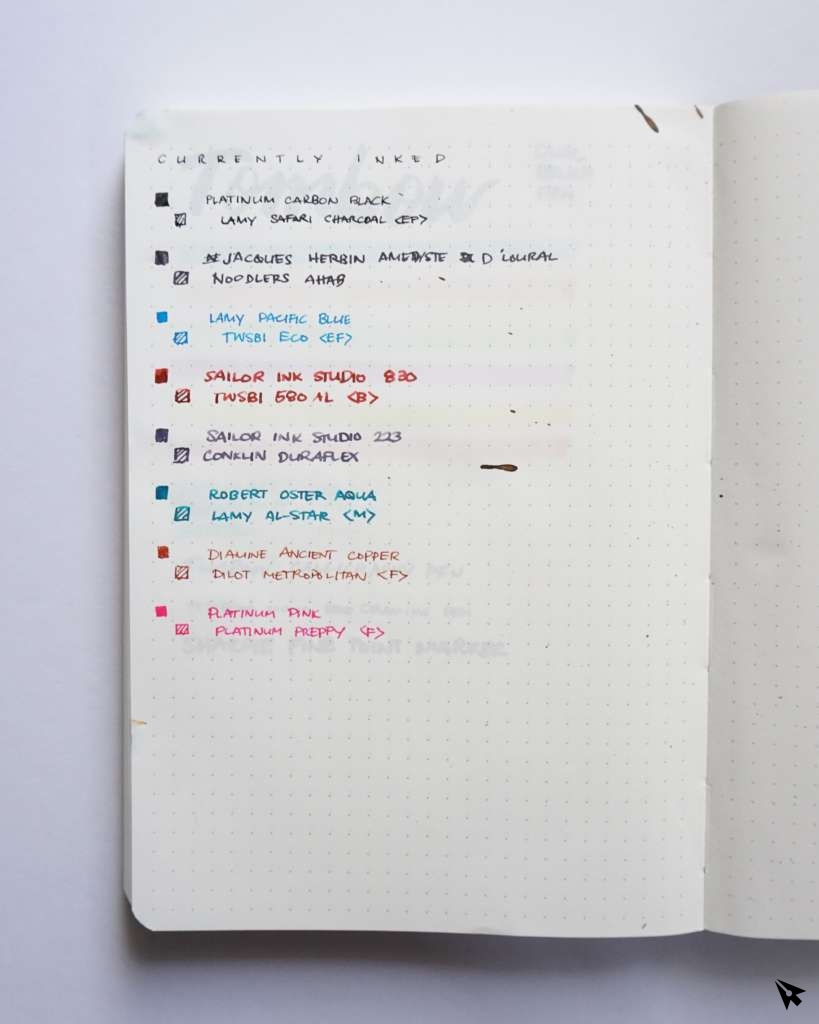 CURRENTLY INKED
PLATINUM CARBON BLACK
LAMY SAFARI CHARCOAL <EF>
JACQUES HERBIN AMETHYSTE D'LOURAL
NOODLERS AHAB
LAMY PACIFIC BLUE
TWSBI ECO <EF>
SAILOR INK STUDIO 830
TWSBI 580 AL <B>
SAILOR INK STUDIO 223
CONKLIN DURAFLEX
ROBERT OSTER AQUA
LAMY AL-STAR <M>
DIAMINE ANCIENT COPPER
PILOT METROPOLITAN <F>
PLATINUM PINK
PLATINUM PREPPY <F>